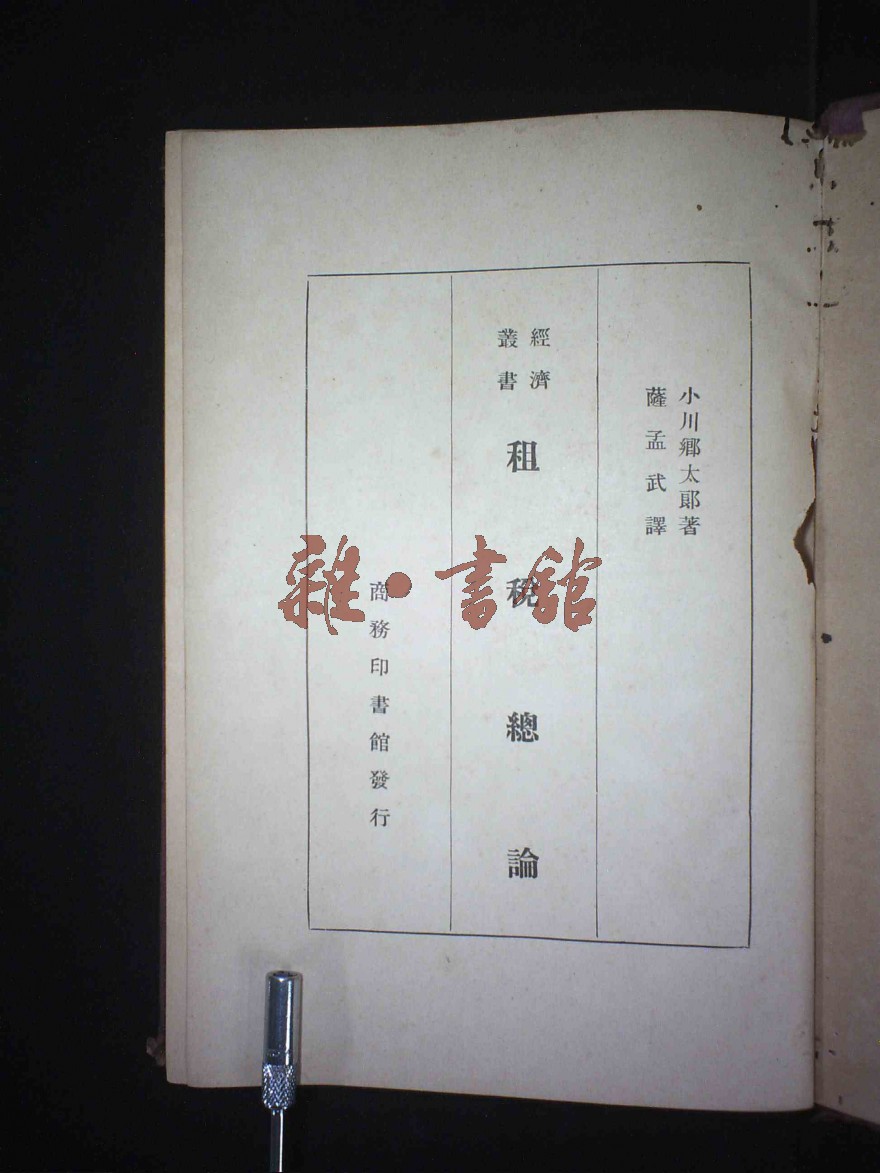 小川鄉太郞著
薩孟武譯
經濟
叢書
租稅總論
商務印書館發行
雜·書館